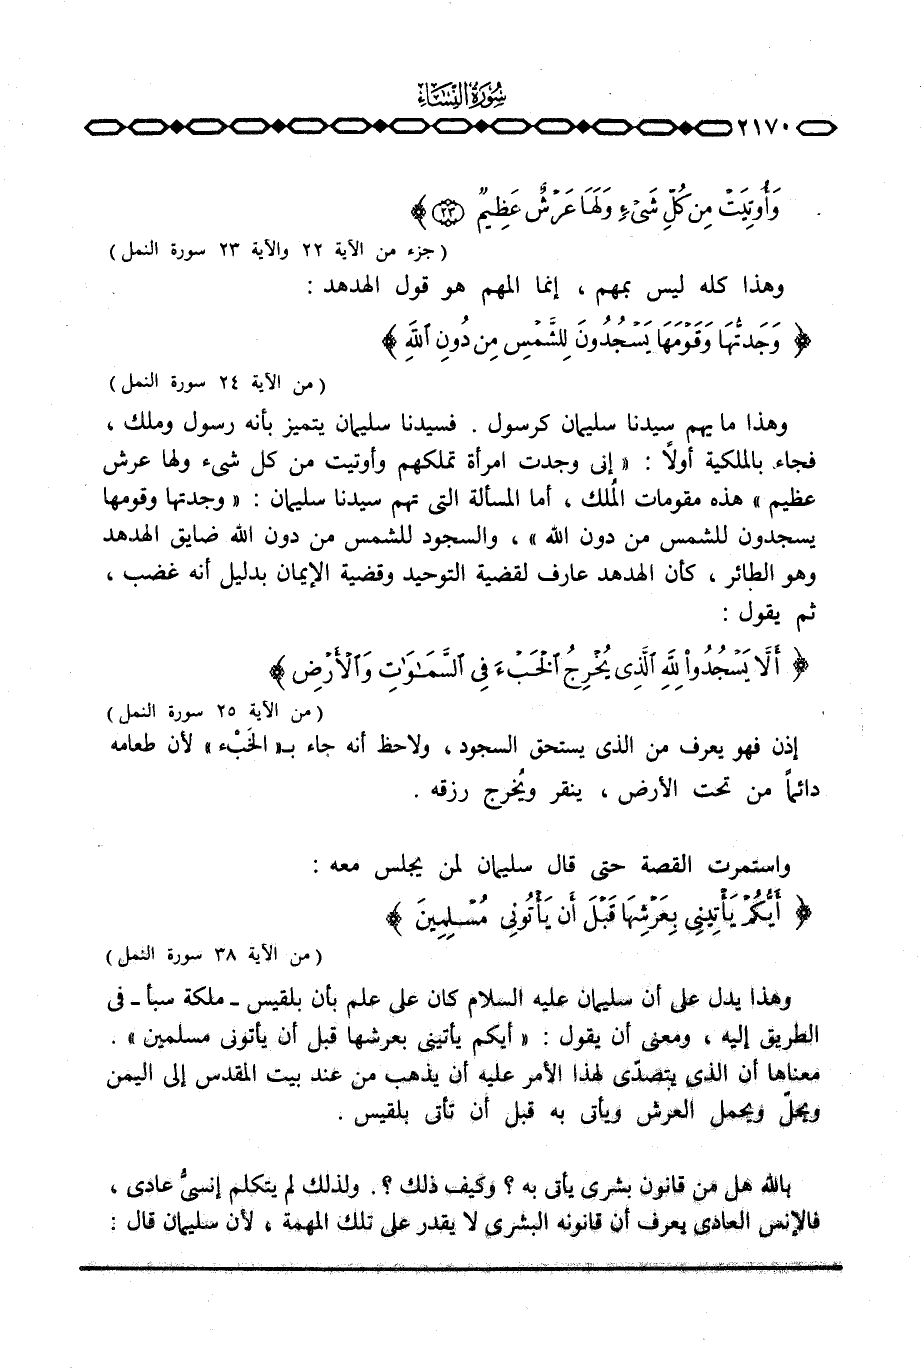 سُورَةُ النِّسَاءِ
٢١٧٠
وَأُوتِيَتْ مِن كُلِّ شَىْءٍ وَلَهَا عَرْشٌ عَظِيمٌ ﴿٢٣﴾ ﴾
( جزء من الآية ٢٢ والآية ٢٣ سورة النمل )
وهذا كله ليس بمهم ، إنما المهم هو قول الهدهد :
﴿ وَجَدتُّهَا وَقَوْمَهَا يَسْجُدُونَ لِلشَّمْسِ مِن دُونِ ٱللَّهِ ﴾
( من الآية ٢٤ سورة النمل )
وهذا ما يهم سيدنا سليمان كرسول . فسيدنا سليمان يتميز بأنه رسول وملك ،
فجاء بالملكية أولاً : « إنى وجدت امرأة تملكهم وأوتيت من كل شىء ولها عرش
عظيم » هذه مقومات المُلك ، أما المسألة التى تهم سيدنا سليمان : « وجدتها وقومها
يسجدون للشمس من دون الله » ، والسجود للشمس من دون الله ضايق الهدهد
وهو الطائر ، كأن الهدهد عارف لقضية التوحيد وقضية الإيمان بدليل أنه غضب ،
ثم يقول :
﴿ أَلَّا يَسْجُدُوا۟ لِلَّهِ ٱلَّذِى يُخْرِجُ ٱلْخَبْءَ فِى ٱلسَّمَـٰوَٰتِ وَٱلْأَرْضِ ﴾
( من الآية ٢٥ سورة النمل )
إذن فهو يعرف من الذى يستحق السجود ، ولاحظ أنه جاء بـ« الخَبْء » لأن طعامه
دائماً من تحت الأرض ، ينقر ويُخرج رزقه .
واستمرت القصة حتى قال سليمان لمن يجلس معه :
﴿ أَيُّكُمْ يَأْتِينِى بِعَرْشِهَا قَبْلَ أَن يَأْتُونِى مُسْلِمِينَ ﴾
( من الآية ٣٨ سورة النمل )
وهذا يدل على أن سليمان عليه السلام كان على علم بأن بلقيس ـ ملكة سبأ ـ فى
الطريق إليه ، ومعنى أن يقول : « أيكم يأتينى بعرشها قبل أن يأتونى مسلمين » .
معناها أن الذى يتصدّى لهذا الأمر عليه أن يذهب من عند بيت المقدس إلى اليمن
ويحلّ ويحمل العرش ويأتى به قبل أن تأتى بلقيس .
بالله هل من قانون بشرى يأتى به ؟ وكيف ذلك ؟. ولذلك لم يتكلم إنسىُّ عادى ،
فالإنس العادى يعرف أن قانونه البشرى لا يقدر على تلك المهمة ، لأن سليمان قال :